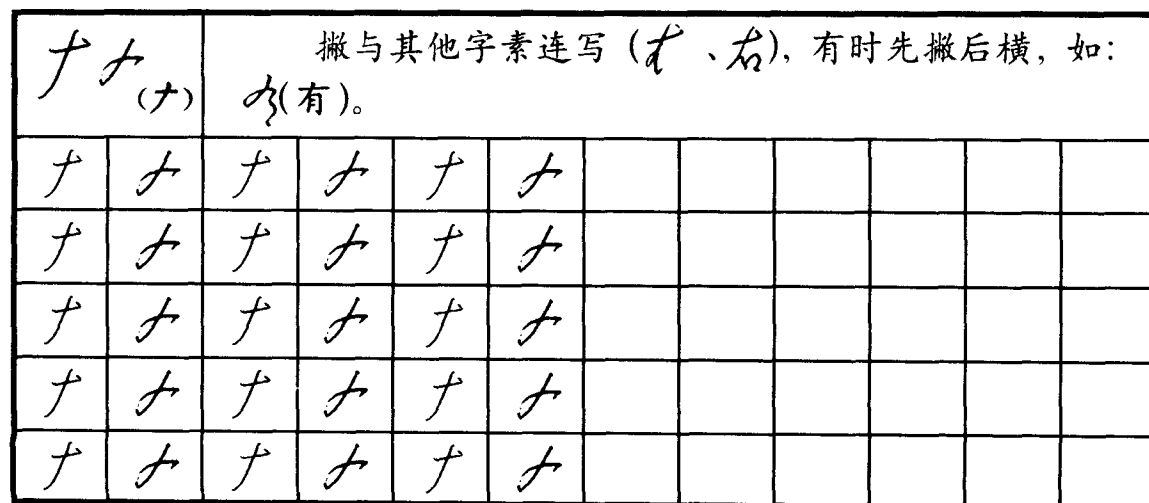 𠂇 𠂇 (𠂇)
撇与其他字素连写 (才、右), 有时先撇后横, 如:
有(有)。
𠂇 𠂇 𠂇 𠂇 𠂇 𠂇
𠂇 𠂇 𠂇 𠂇 𠂇 𠂇
𠂇 𠂇 𠂇 𠂇 𠂇 𠂇
𠂇 𠂇 𠂇 𠂇 𠂇 𠂇
𠂇 𠂇 𠂇 𠂇 𠂇 𠂇